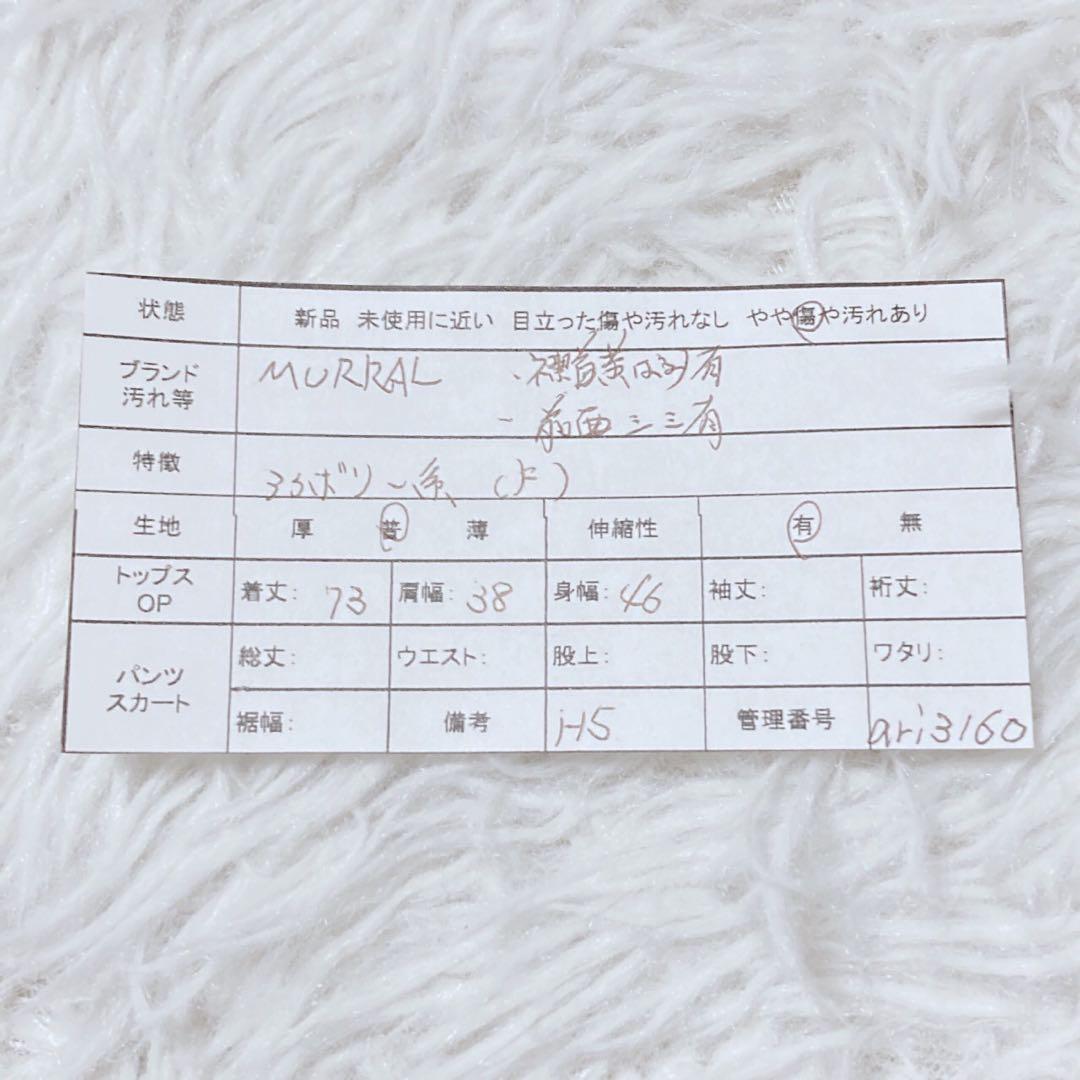 状態 新品 未使用に近い 目立った傷や汚れなし やや傷や汚れあり
ブランド 汚れ等 MURRAL ・襟首黄ばみ有
・前面シミ有
特徴
生地 厚 普 薄 伸縮性 有 無
トップス OP 着丈: 73 肩幅: 38 身幅: 46 袖丈: 裄丈:
パンツ スカート 総丈: ウエスト: 股上: 股下: ワタリ:
裾幅: 備考 H5 管理番号 ari3160